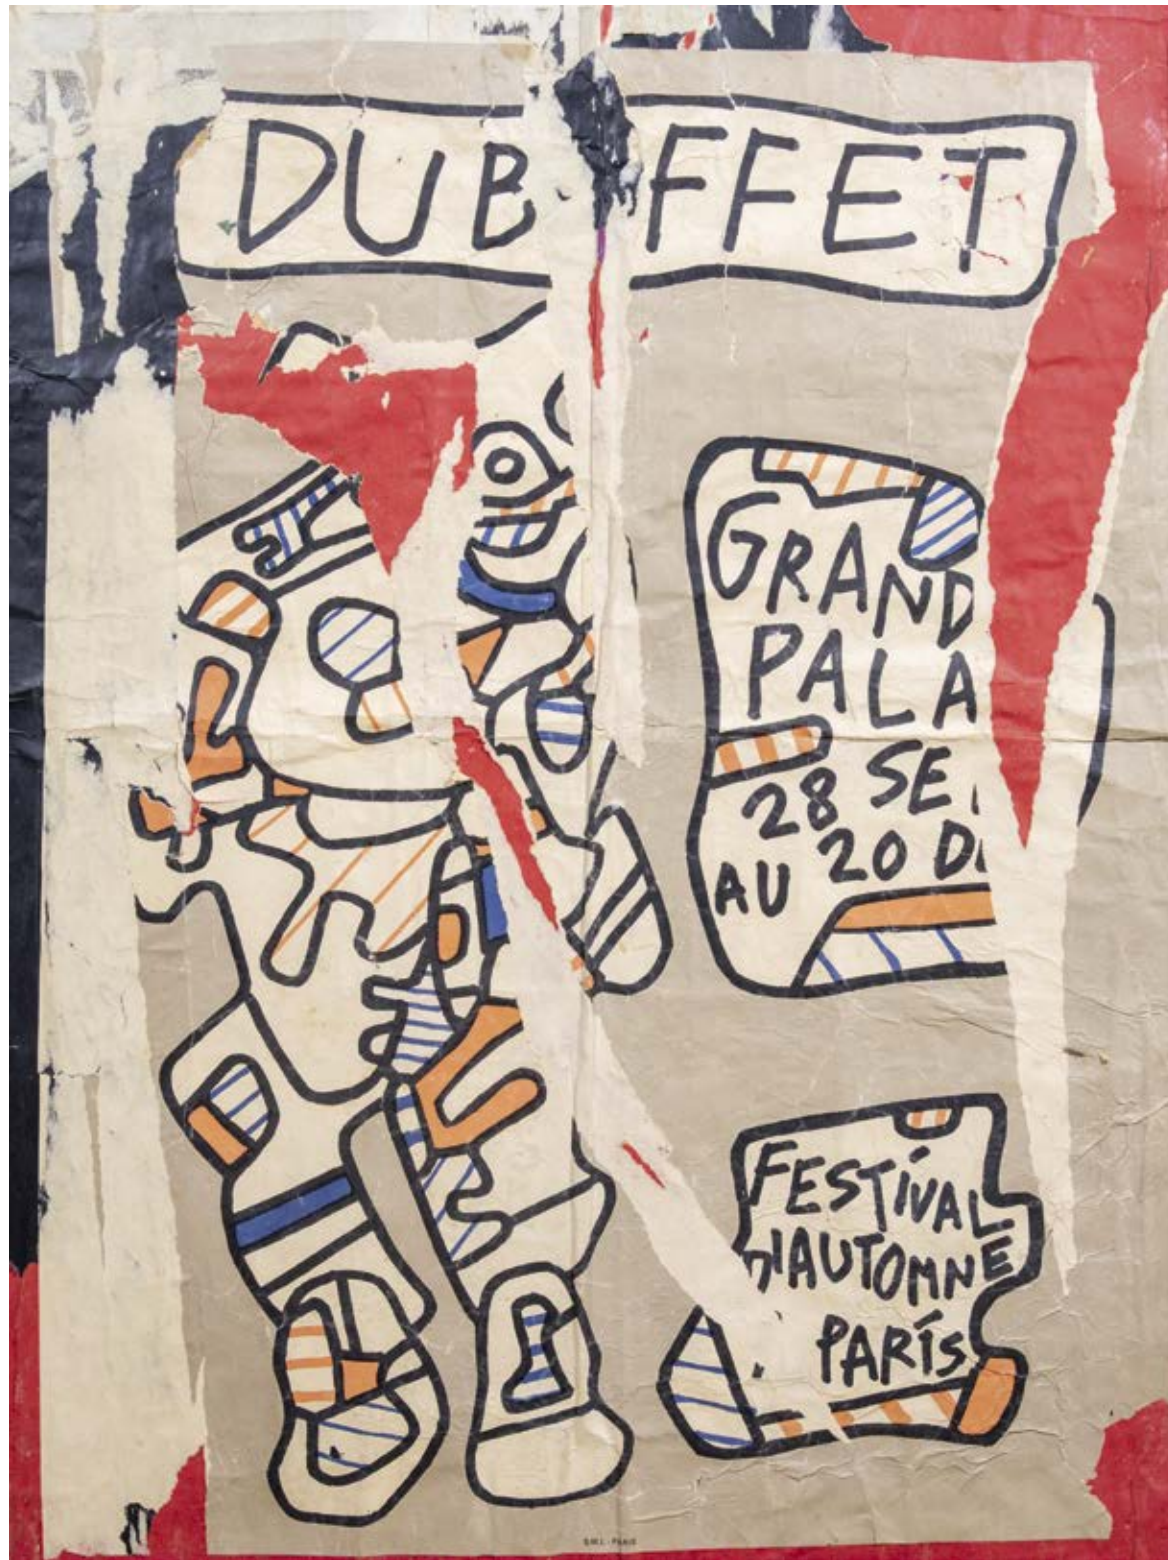 DUB FFET
GRAND
PALA
28 SE
AU 20 D
FESTíVAL
D'AUTOMNE
PARíS